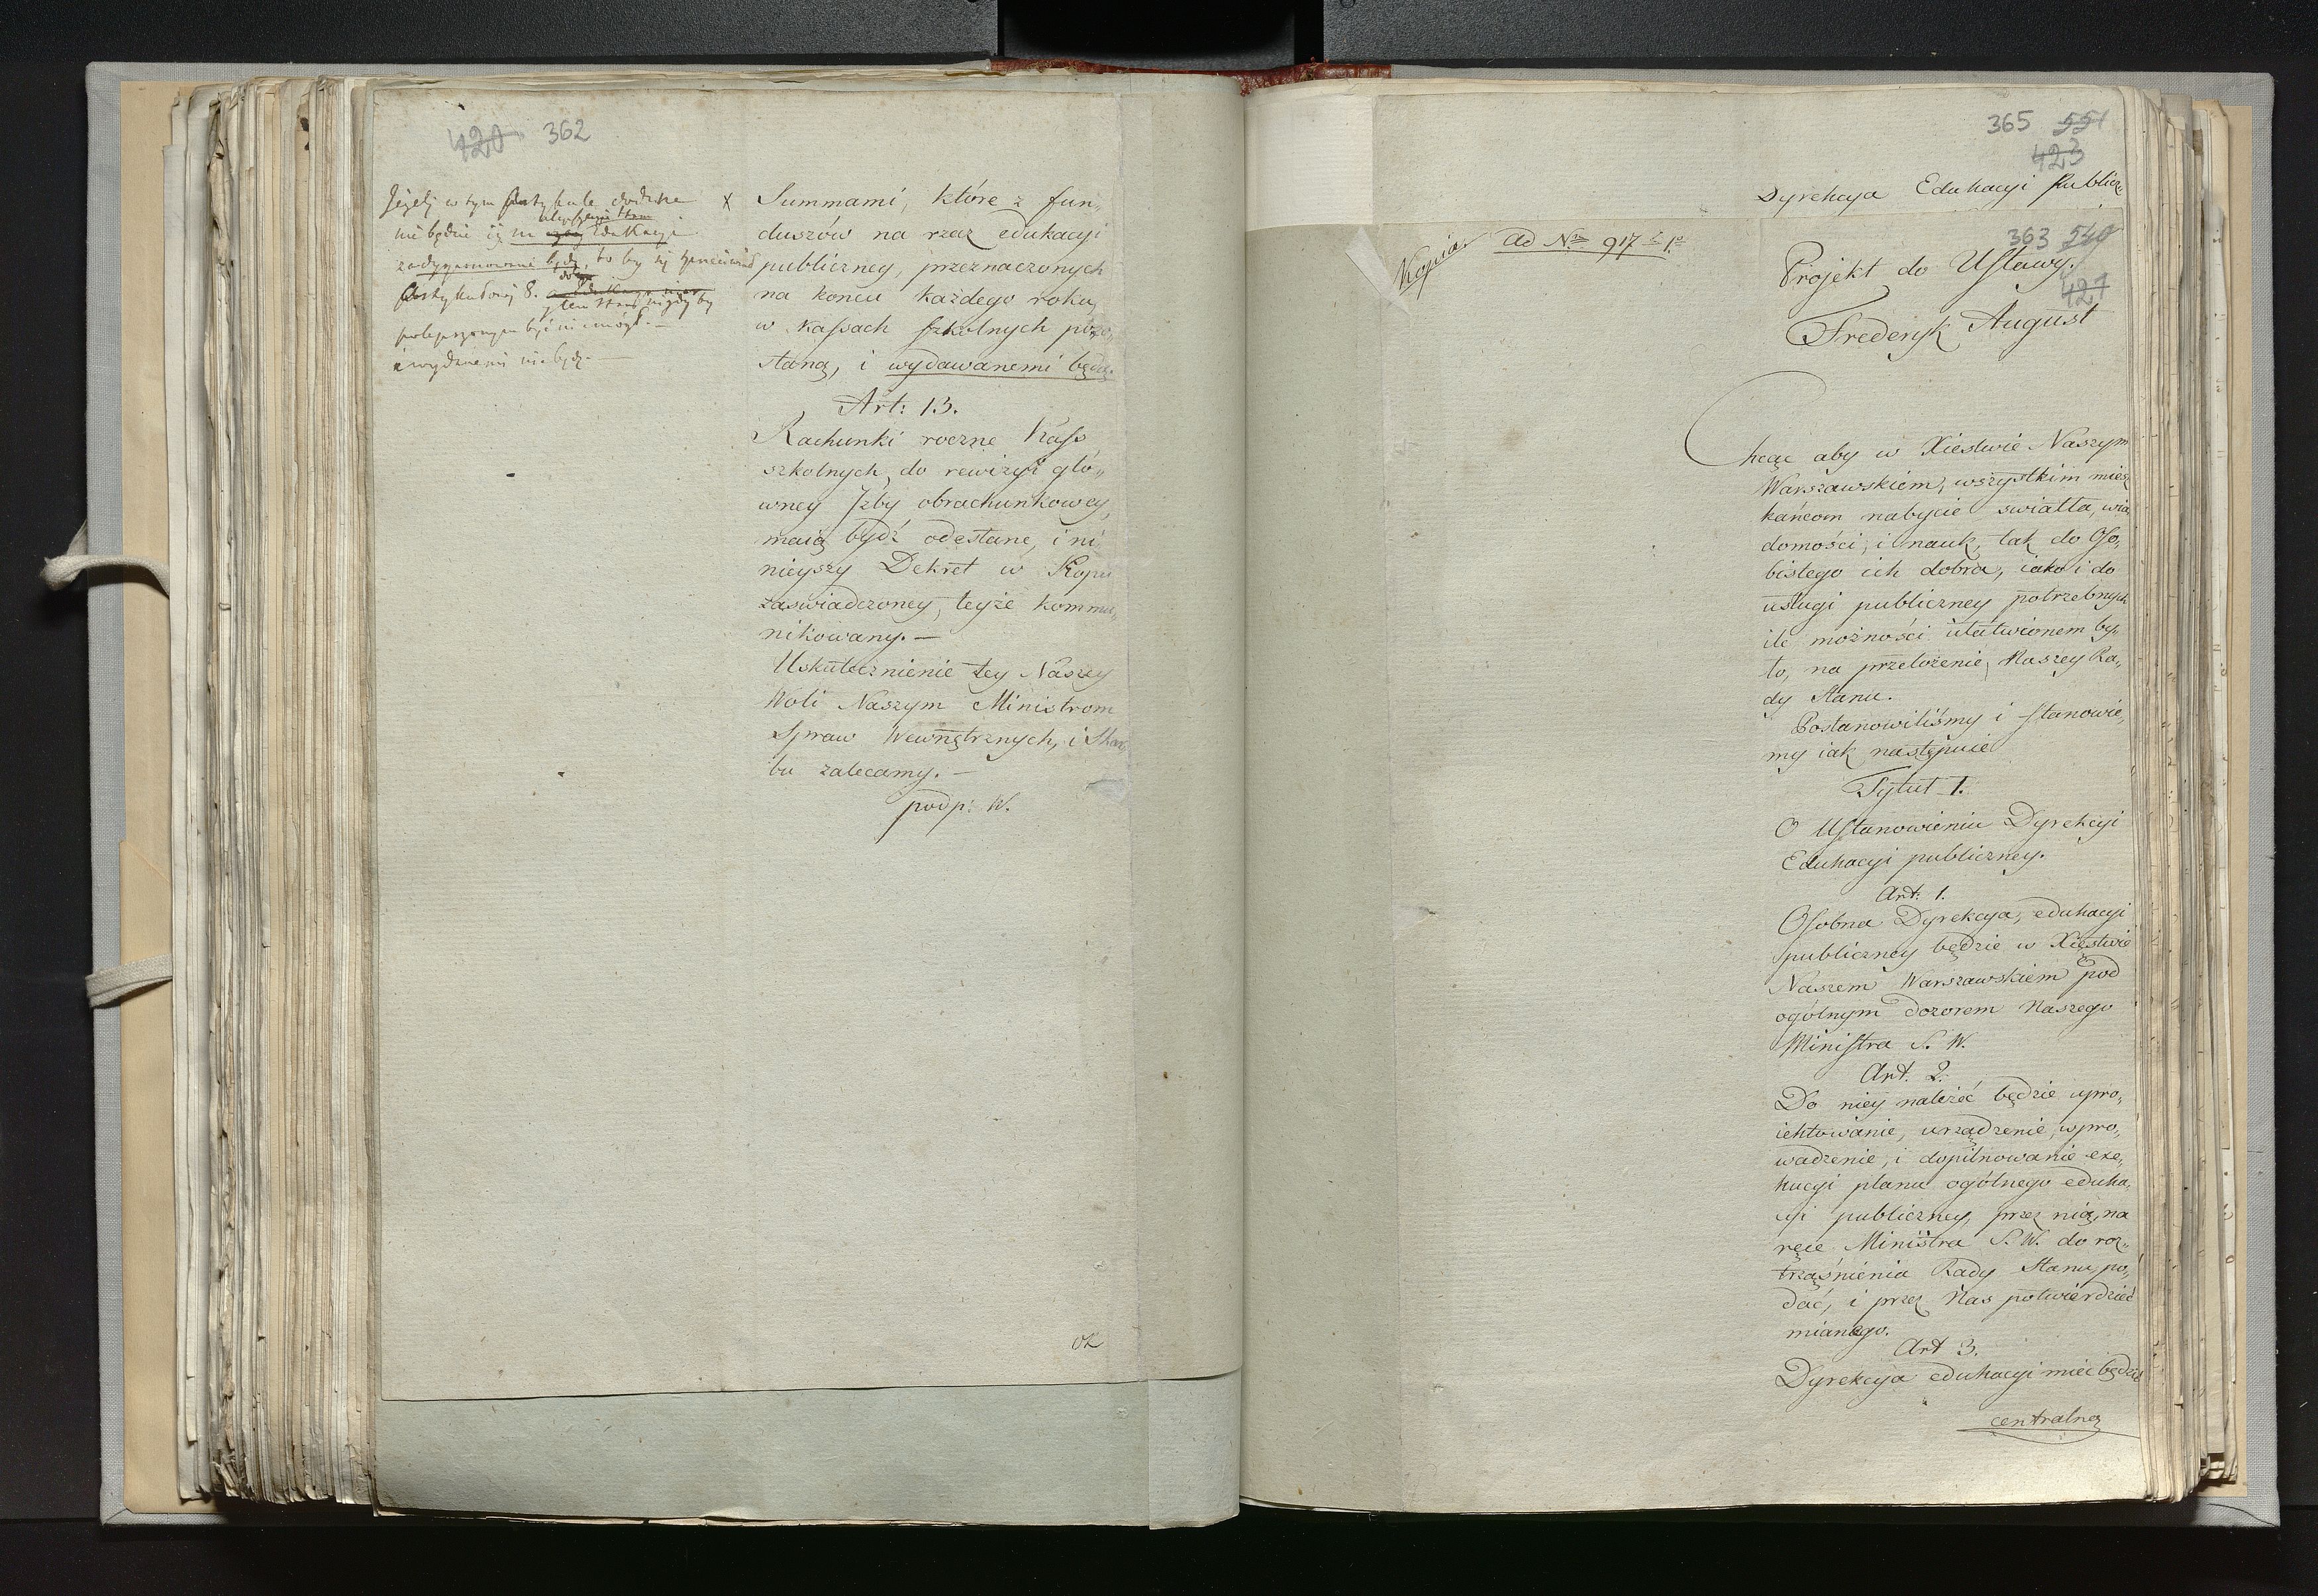 420 362
Jeżeli w tym Artykule dodane
nie będzie iż na
ulepszenie stanu
edukacyi
zadysponowane będą, to by się sprzeciwiał
Artykułowi 8.
ten stan nigdy by
polepszonym być nie mógł. —
i wydanemi nie będą. —
x Summami, które z fun„
duszów na rzaz edukacyi
publiczney, przeznaczonych
na koncu każdego roku,
w Kassach szkolnych pozo„
staną, i wydawanemi będą.
Art: 13.
Rachunki roczne Kass
szkolnych, do rewizyi głó„
wney Jzby obrachunkowey,
maią bydź odesłane, i ni
nieyszy Dekret w Kopii
zaswiadczoney, teyże kommu„
nikowany. —
Uskutecznienie tey Naszey
Woli Naszym Ministrom
Spraw Wewnętrznych, i Skar„
bu zalecamy. —
podp: W.
365 551
423
Dyrekcya Edukacyi Publicz„
Kopia. Ad Nrm 917 1o
363 540
Projekt do Ustawy.
421
Frederyk August
Chcąc aby w Xiestwie Naszym
Warszawskiem, wszystkim miesz
kańcom nabycie swiatła, wia
domości, i nauk, tak do Oso„
bistego ich dobra, iako i do
usługi publiczney potrzebnych
ile możności ułatwionem by„
ło, na przełożenie, Naszey Ra„
dy Stanu.
Postanowiliśmy i stanowie„
my iak następuie
Tytuł 1.
O Ustanowieniu Dyrekcyi
Edukacyi publiczney.
Art: 1.
Osobna Dyrekcya, edukacyi
publiczney będzie w Xięstwie
Naszem Warszawskiem pod
ogólnym dozorem Naszego
Ministra S. W.
Art. 2.
Do niey należeć będzie upro„
iektowanie, urządzenie, wpro„
wadzenie, i dopilnowanie exe„
kucyi planu ogólnego eduka„
cyi publiczney, przez nią, na
ręce Ministra S. W. do roz„
trząśnienia Rady Stanu po„
dać, i przez Nas potwierdzić
mianego.
Art 3.
Dyrekcya edukacyi mieć będzie
centralną